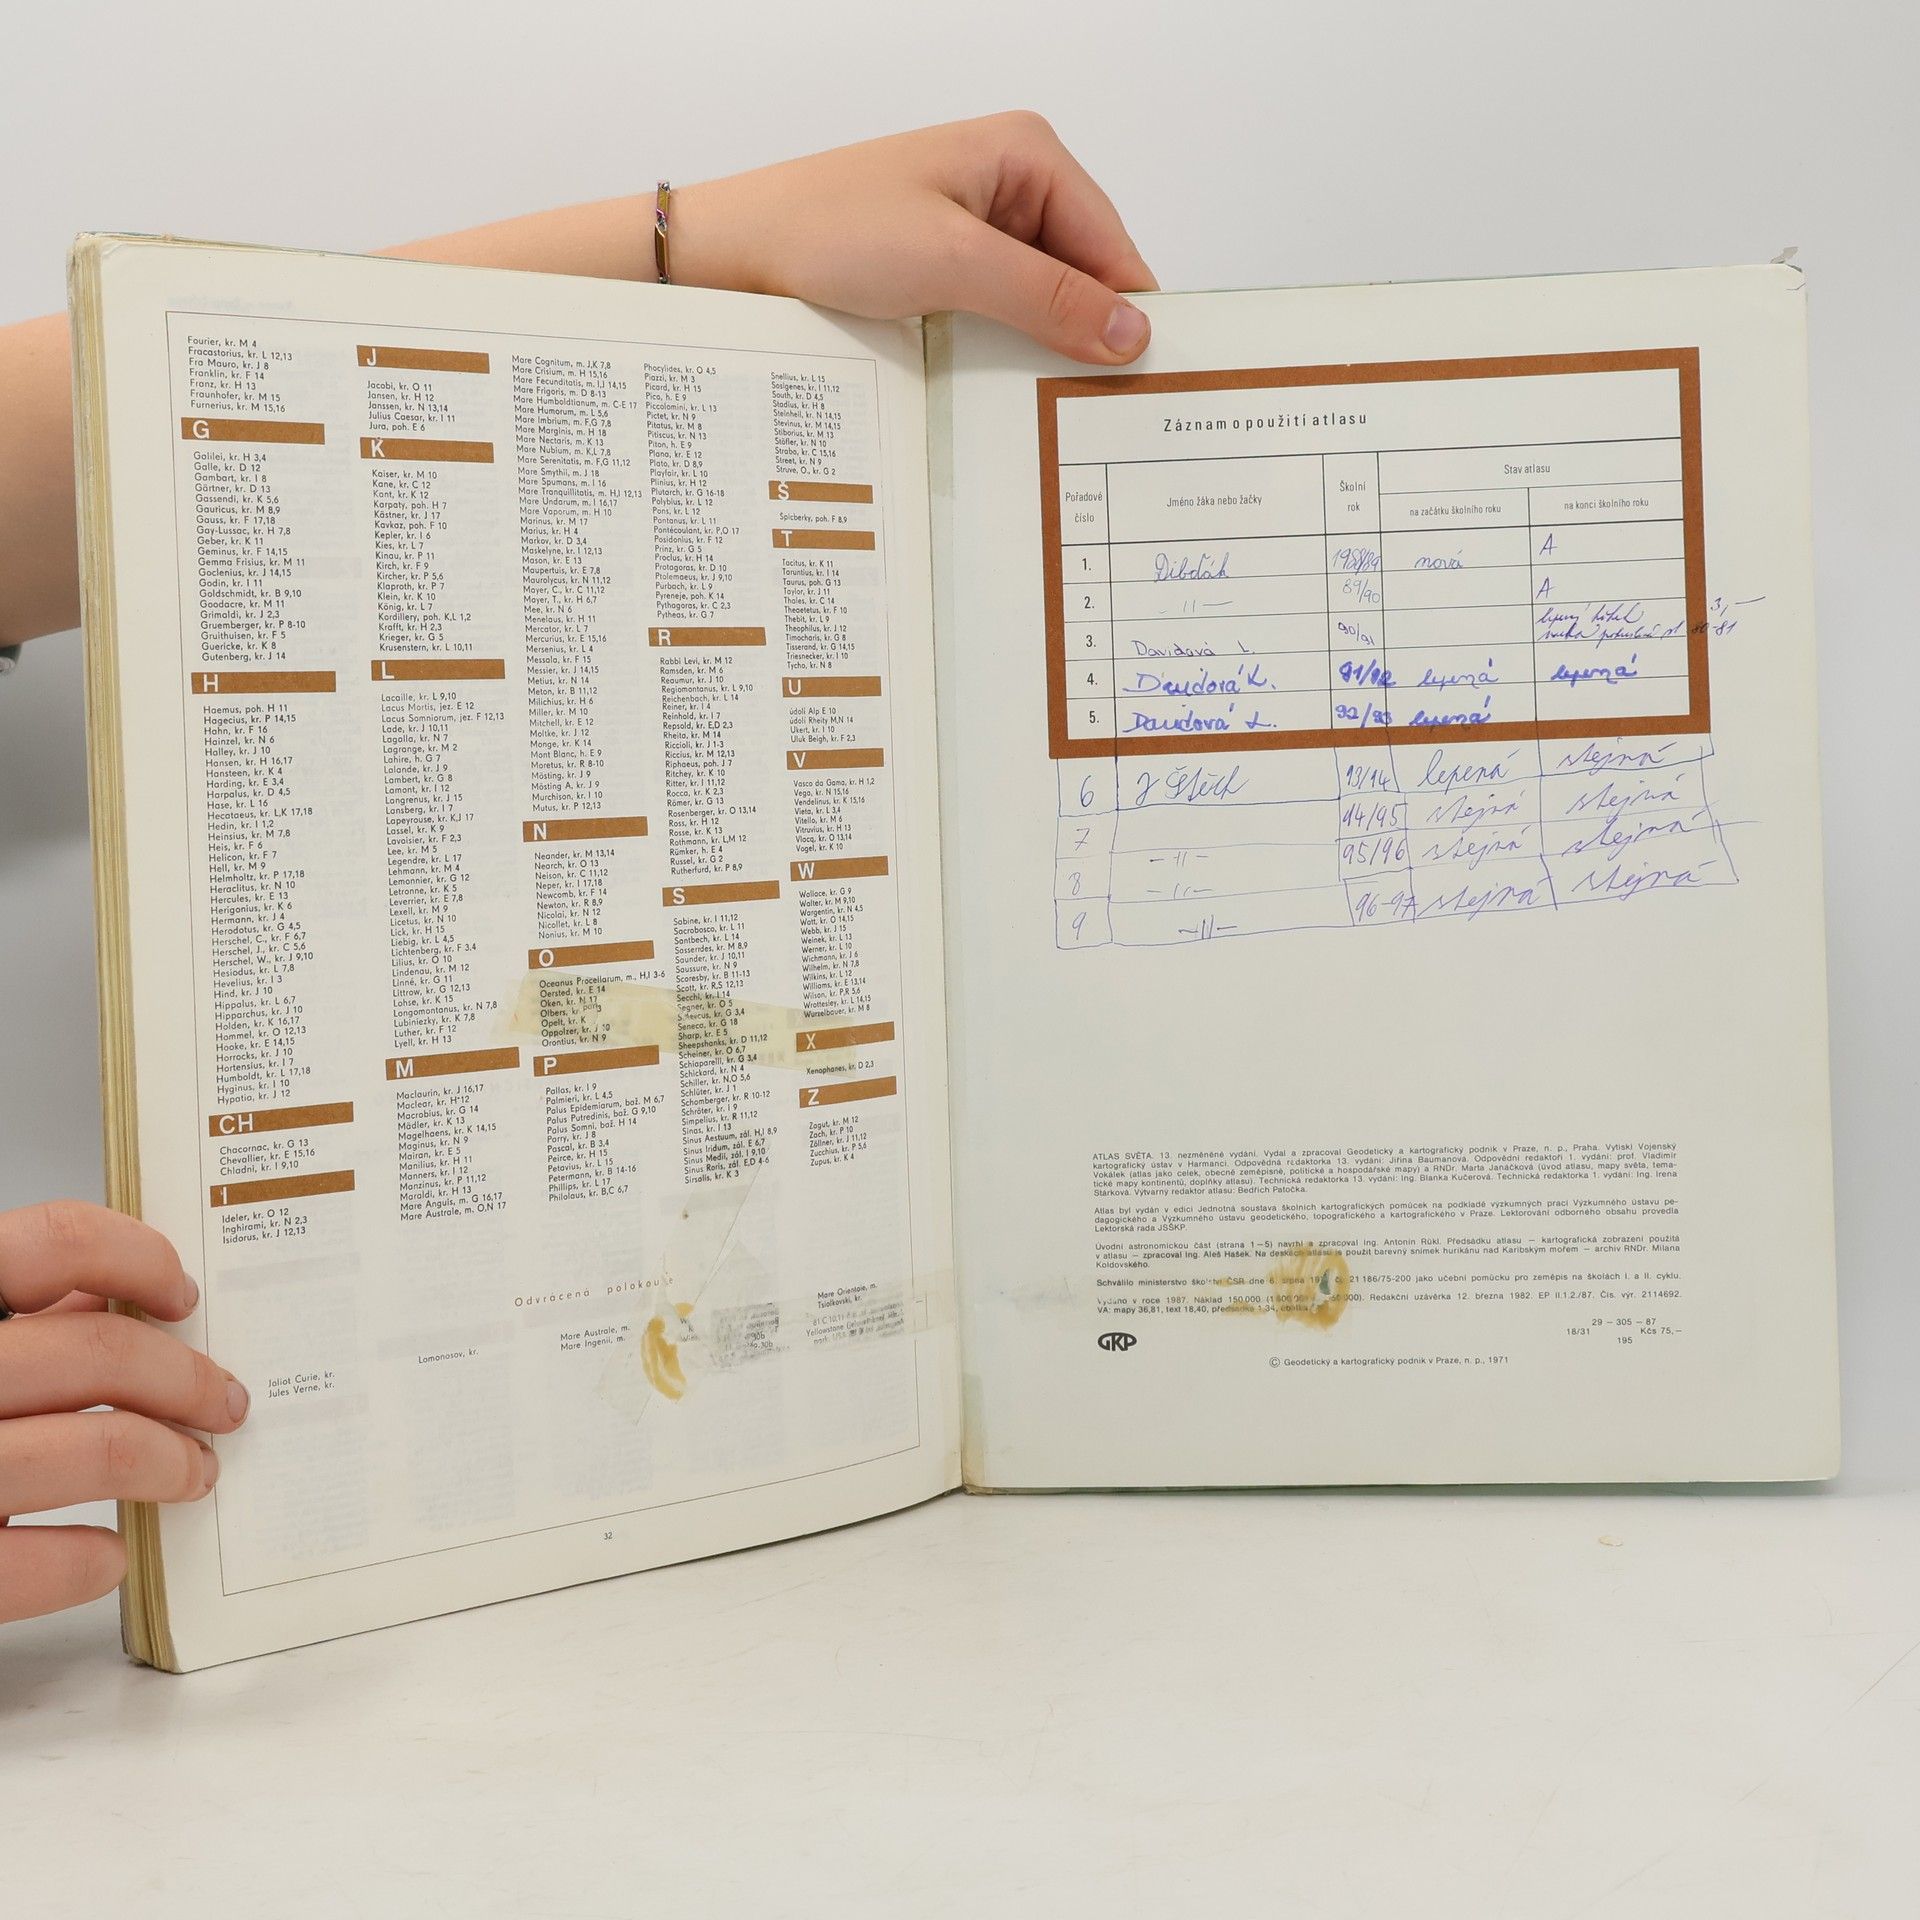 Fourier, kr. M 4
Fracastorius, kr. L 12,13
Fra Mauro, kr. J 8
Franklin, kr. F 14
Franz, kr. H 13
Fraunhofer, kr. M 15
Furnerius, kr. M 15,16
G
Galilei, kr. H 3,4
Galle, kr. D 12
Gambart, kr. I 8
Gärtner, kr. D 13
Gassendi, kr. K 5,6
Gauricus, kr. M 8,9
Gauss, kr. F 17,18
Gay-Lussac, kr. H 7,8
Geber, kr. K 11
Geminus, kr. F 14,15
Gemma Frisius, kr. M 11
Goclenius, kr. J 14,15
Godin, kr. I 11
Goldschmidt, kr. B 9,10
Goodacre, kr. M 11
Grimaldi, kr. J 2,3
Gruemberger, kr. P 8-10
Gruithuisen, kr. F 5
Guericke, kr. K 8
Gutenberg, kr. J 14
H
Haemus, poh. H 11
Hagecius, kr. P 14,15
Hahn, kr. F 16
Hainzel, kr. N 6
Halley, kr. J 10
Hansen, kr. H 16,17
Hansteen, kr. K 4
Harding, kr. E 3,4
Harpalus, kr. D 4,5
Hase, kr. L 16
Hecataeus, kr. L,K 17,18
Hedin, kr. I 1,2
Heinsius, kr. M 7,8
Heis, kr. F 6
Helicon, kr. F 7
Hell, kr. M 9
Helmholtz, kr. P 17,18
Heraclitus, kr. N 10
Hercules, kr. E 13
Herigonius, kr. K 6
Hermann, kr. J 4
Herodotus, kr. G 4,5
Herschel, C., kr. F 6,7
Herschel, J., kr. C 5,6
Herschel, W., kr. J 9,10
Hesiodus, kr. L 7,8
Hevelius, kr. I 3
Hind, kr. J 10
Hippalus, kr. L 6,7
Hipparchus, kr. J 10
Holden, kr. K 16,17
Hommel, kr. O 12,13
Hooke, kr. E 14,15
Horrocks, kr. J 10
Hortensius, kr. I 7
Humboldt, kr. L 17,18
Hyginus, kr. I 10
Hypatia, kr. J 12
CH
Chacornac, kr. G 13
Chevallier, kr. E 15,16
Chladni, kr. I 9,10
I
Ideler, kr. O 12
Inghirami, kr. N 2,3
Isidorus, kr. J 12,13
J
Jacobi, kr. O 11
Jansen, kr. H 12
Janssen, kr. N 13,14
Julius Caesar, kr. I 11
Jura, poh. E 6
K
Kaiser, kr. M 10
Kane, kr. C 12
Kant, kr. K 12
Karpaty, poh. H 7
Kästner, kr. J 17
Kavkaz, poh. F 10
Kepler, kr. I 6
Kies, kr. L 7
Kinau, kr. P 11
Kirch, kr. F 9
Kircher, kr. P 5,6
Klaproth, kr. P 7
Klein, kr. K 10
König, kr. L 7
Kordillery, poh. K,L 1,2
Krafft, kr. H 2,3
Krieger, kr. G 5
Krusenstern, kr. L 10,11
L
Lacaille, kr. L 9,10
Lacus Mortis, jez. E 12
Lacus Somniorum, jez. F 12,13
Lade, kr. J 10,11
Lagalla, kr. N 7
Lagrange, kr. M 2
Lahire, h. G 7
Lalande, kr. J 9
Lambert, kr. G 8
Lamont, kr. I 12
Langrenus, kr. J 15
Lansberg, kr. I 7
Lapeyrouse, kr. K,J 17
Lassel, kr. K 9
Lavoisier, kr. F 2,3
Lee, kr. M 5
Legendre, kr. L 17
Lehmann, kr. M 4
Lemonnier, kr. G 12
Letronne, kr. K 5
Leverrier, kr. E 7,8
Lexell, kr. M 9
Licetus, kr. N 10
Lick, kr. H 15
Liebig, kr. L 4,5
Lichtenberg, kr. F 3,4
Lilius, kr. O 10
Lindenau, kr. M 12
Linné, kr. G 11
Littrow, kr. G 12,13
Lohse, kr. K 15
Longomontanus, kr. N 7,8
Lubiniezky, kr. K 7,8
Luther, kr. F 12
Lyell, kr. H 13
M
Maclaurin, kr. J 16,17
Maclear, kr. H 12
Macrobius, kr. G 14
Mädler, kr. K 13
Magelhaens, kr. K 14,15
Maginus, kr. N 9
Mairan, kr. E 5
Manilius, kr. H 11
Manners, kr. I 12
Manzinus, kr. P 11,12
Maraldi, kr. H 13
Mare Anguis, m. G 16,17
Mare Australe, m. O,N 17
Mare Cognitum, m. J,K 7,8
Mare Crisium, m. H 15,16
Mare Fecunditatis, m. I,J 14,15
Mare Frigoris, m. D 8-13
Mare Humboldtianum, m. C-E 17
Mare Humorum, m. L 5,6
Mare Imbrium, m. F,G 7,8
Mare Marginis, m. H 18
Mare Nectaris, m. K 13
Mare Nubium, m. K,L 7,8
Mare Serenitatis, m. F,G 11,12
Mare Smythii, m. J 18
Mare Spumans, m. I 16
Mare Tranquillitatis, m. H,I 12,13
Mare Undarum, m. I 16,17
Mare Vaporum, m. H 10
Marinus, kr. M 17
Marius, kr. H 4
Markov, kr. D 3,4
Maskelyne, kr. I 12,13
Mason, kr. E 13
Maupertuis, kr. E 7,8
Maurolycus, kr. N 11,12
Mayer, C., kr. C 11,12
Mayer, T., kr. H 6,7
Mee, kr. N 6
Menelaus, kr. H 11
Mercator, kr. L 7
Mercurius, kr. E 15,16
Mersenius, kr. L 4
Messala, kr. F 15
Messier, kr. J 14,15
Metius, kr. N 14
Meton, kr. B 11,12
Milichius, kr. H 6
Miller, kr. M 10
Mitchell, kr. E 12
Moltke, kr. J 12
Monge, kr. K 14
Mont Blanc, h. E 9
Moretus, kr. R 8-10
Mösting, kr. J 9
Mösting A, kr. J 9
Murchison, kr. I 10
Mutus, kr. P 12,13
N
Neander, kr. M 13,14
Nearch, kr. O 13
Neison, kr. C 11,12
Neper, kr. I 17,18
Newcomb, kr. F 14
Newton, kr. R 8,9
Nicolai, kr. N 12
Nicollet, kr. L 8
Nonius, kr. M 10
O
Oceanus Procellarum, m., H,I 3-6
Oersted, kr. E 14
Oken, kr. N 17
Olbers, kr.
Opelt, kr. K
Oppolzer, kr. J 10
Orontius, kr. N 9
P
Pallas, kr. I 9
Palmieri, kr. L 4,5
Palus Epidemiarum, baž. M 6,7
Palus Putredinis, baž. G 9,10
Palus Somni, baž. H 14
Parry, kr. J 8
Pascal, kr. B 3,4
Peirce, kr. H 15
Petavius, kr. L 15
Petermann, kr. B 14-16
Phillips, kr. L 17
Philolaus, kr. B,C 6,7
Phocylides, kr. O 4,5
Piazzi, kr. M 3
Picard, kr. H 15
Pico, h. E 9
Piccolomini, kr. L 13
Pictet, kr. N 9
Pitatus, kr. M 8
Pitiscus, kr. N 13
Piton, h. E 9
Plana, kr. E 12
Plato, kr. D 8,9
Playfair, kr. L 10
Plinius, kr. H 12
Plutarch, kr. G 16-18
Polybius, kr. L 12
Pons, kr. L 12
Pontanus, kr. L 11
Pontécoulant, kr. P,O 17
Posidonius, kr. F 12
Prinz, kr. G 5
Proclus, kr. H 14
Protagoras, kr. D 10
Ptolemaeus, kr. J 9,10
Purbach, kr. L 9
Pyreneje, poh. K 14
Pythagoras, kr. C 2,3
Pytheas, kr. G 7
R
Rabbi Levi, kr. M 12
Ramsden, kr. M 6
Reaumur, kr. J 10
Regiomontanus, kr. L 9,10
Reichenbach, kr. L 14
Reiner, kr. I 4
Reinhold, kr. I 7
Repsold, kr. E,D 2,3
Rheita, kr. M 14
Riccioli, kr. J 1-3
Riccius, kr. M 12,13
Riphaeus, poh. J 7
Ritchey, kr. K 10
Ritter, kr. I 11,12
Rocca, kr. K 2,3
Römer, kr. G 13
Rosenberger, kr. O 13,14
Ross, kr. H 12
Rosse, kr. K 13
Rothmann, kr. L,M 12
Rümker, h. E 4
Russel, kr. G 2
Rutherfurd, kr. P 8,9
S
Sabine, kr. I 11,12
Sacrobosco, kr. L 11
Santbech, kr. L 14
Sasserides, kr. M 8,9
Saunder, kr. J 10,11
Saussure, kr. N 9
Scoresby, kr. B 11-13
Scott, kr. R,S 12,13
Secchi, kr. I 14
Segner, kr. O 5
Seleucus, kr. G 3,4
Seneca, kr. G 18
Sharp, kr. E 5
Sheepshanks, kr. D 11,12
Scheiner, kr. O 6,7
Schiaparelli, kr. G 3,4
Schickard, kr. N 4
Schiller, kr. N,O 5,6
Schlüter, kr. J 1
Schomberger, kr. R 10-12
Schröter, kr. I 9
Simpelius, kr. R 11,12
Sinas, kr. I 13
Sinus Aestuum, zál. H,I 8,9
Sinus Iridum, zál. E 6,7
Sinus Medii, zál. I 9,10
Sinus Roris, zál. E,D 4-6
Sirsalis, kr. K 3
Snellius, kr. L 15
Sosigenes, kr. I 11,12
South, kr. D 4,5
Stadius, kr. H 8
Steinheil, kr. N 14,15
Stevinus, kr. M 14,15
Stiborius, kr. M 13
Stöfler, kr. N 10
Strabo, kr. C 15,16
Street, kr. N 9
Struve, O., kr. G 2
Š
Špicberky, poh. F 8,9
T
Tacitus, kr. K 11
Taruntius, kr. I 14
Taurus, poh. G 13
Taylor, kr. J 11
Thales, kr. C 14
Theaetetus, kr. F 10
Thebit, kr. L 9
Theophilus, kr. J 12
Timocharis, kr. G 8
Tisserand, kr. G 14,15
Triesnecker, kr. I 10
Tycho, kr. N 8
U
údolí Alp E 10
údolí Rheity M,N 14
Ukert, kr. I 10
Uluk Beigh, kr. F 2,3
V
Vasco da Gama, kr. H 1,2
Vega, kr. N 15,16
Vendelinus, kr. K 15,16
Vieta, kr. L 3,4
Vitello, kr. M 6
Vitruvius, kr. H 13
Vlacq, kr. O 13,14
Vogel, kr. K 10
W
Wallace, kr. G 9
Walter, kr. M 9,10
Wargentin, kr. N 4,5
Watt, kr. O 14,15
Webb, kr. J 15
Weinek, kr. L 13
Werner, kr. L 10
Wichmann, kr. J 6
Wilhelm, kr. N 7,8
Wilkins, kr. L 12
Williams, kr. E 13,14
Wilson, kr. P,R 5,6
Wrottesley, kr. L 14,15
Wurzelbauer, kr. M 8
X
Xenophanes, kr. D 2,3
Z
Zagut, kr. M 12
Zach, kr. P 10
Zöllner, kr. J 11,12
Zucchius, kr. P 5,6
Zupus, kr. K 4
Odvrácená polokoule
Joliot Curie, kr.
Jules Verne, kr.
Lomonosov, kr.
Mare Australe, m.
Mare Ingenii, m.
Mare Orientale, m.
Tsiolkovski, kr.
81 C 10,11
Yellowstone
32
Záznam o použití atlasu
Pořadové číslo
Jméno žáka nebo žačky
Školní rok
Stav atlasu
na začátku školního roku
na konci školního roku
1. Dibďák 1988/89 nová A
2. -11- 89/90 A
3. Davidová L. 90/91 lepený 3,-
80-81
4. Davidová L. 91/92 lepená lepená
5. Davidová L. 92/93 lepená
6 J Štěch 93/94 lepená stejná
7 94/95 stejná stejná
8 -11- 95/96 stejná stejná
9 -11- 96-97 stejná stejná
ATLAS SVĚTA. 13. nezměněné vydání. Vydal a zpracoval Geodetický a kartografický podnik v Praze, n. p., Praha. Vytiskl Vojenský
kartografický ústav v Harmanci. Odpovědná redaktorka 13. vydání: Jiřina Baumanová. Odpovědní redaktoři 1. vydání: prof. Vladimír
Vokálek (atlas jako celek, obecně zeměpisné, politické a hospodářské mapy) a RNDr. Marta Janáčková (úvod atlasu, mapy světa, tema-
tické mapy kontinentů, doplňky atlasu). Technická redaktorka 13. vydání: Ing. Blanka Kučerová. Technická redaktorka 1. vydání: Ing. Irena
Stárková. Výtvarný redaktor atlasu: Bedřich Patočka.
Atlas byl vydán v edici Jednotná soustava školních kartografických pomůcek na podkladě výzkumných prací Výzkumného ústavu pe-
dagogického a Výzkumného ústavu geodetického, topografického a kartografického v Praze. Lektorování odborného obsahu provedla
Lektorská rada JSŠKP.
Úvodní astronomickou část (strana 1—5) navrhl a zpracoval Ing. Antonín Rükl. Předsádku atlasu — kartografická zobrazení použitá
v atlasu — zpracoval Ing. Aleš Hašek. Na deskách atlasu je použit barevný snímek hurikánu nad Karibským mořem — archiv RNDr. Milana
Koldovského.
Schválilo ministerstvo školství ČSR dne 6. srpna 21 186/75-200 jako učební pomůcku pro zeměpis na školách I. a II. cyklu.
Vydáno v roce 1987. Náklad 150 000 Redakční uzávěrka 12. března 1982. EP II.1.2./87. Čís. výr. 2114692.
VA: mapy 36,81, text 18,40, předsádka 1,34, obálka
29 — 305 — 87
18/31 Kčs 75,—
195
GKP
© Geodetický a kartografický podnik v Praze, n. p., 1971